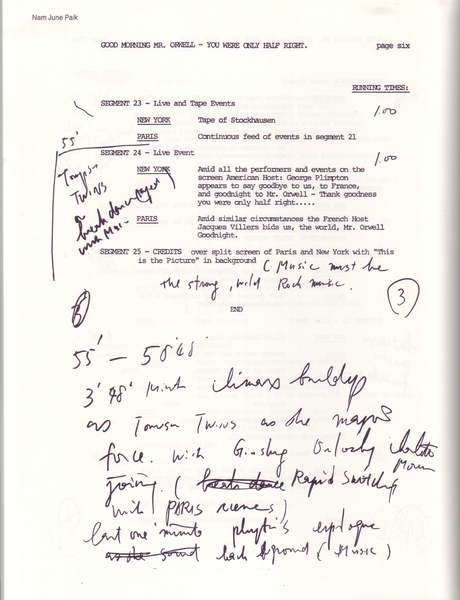 Nam June Paik
GOOD MORNING MR. ORWELL - YOU WERE ONLY HALF RIGHT. page six
RUNNING TIMES:
SEGMENT 23 - Live and Tape Events 1.00
NEW YORK Tape of Stockhausen
PARIS Continuous feed of events in segment 21
55'
SEGMENT 24 - Live Event 1.00
NEW YORK Amid all the performers and events on the
screen American Host: George Plimpton
appears to say goodbye to us, to France,
and goodnight to Mr. Orwell - Thank goodness
you were only half right.....
Twins
break dance
with
PARIS Amid similar circumstances the French Host
Jacques Villers bids us, the world, Mr. Orwell
Goodnight.
SEGMENT 25 - CREDITS over split screen of Paris and New York with "This
is the Picture" in background
( Music must be
the strong, wild Rock music.
3
END
55' — 58'48"
3' 48" climax buildup
as Twins as the major
force. with Ginsberg Orlovsky Charlotte
Moorman
joining. ( break dance Rapid Switching
with PARIS scenes )
last one minute epilogue
as the sound background ( Music )